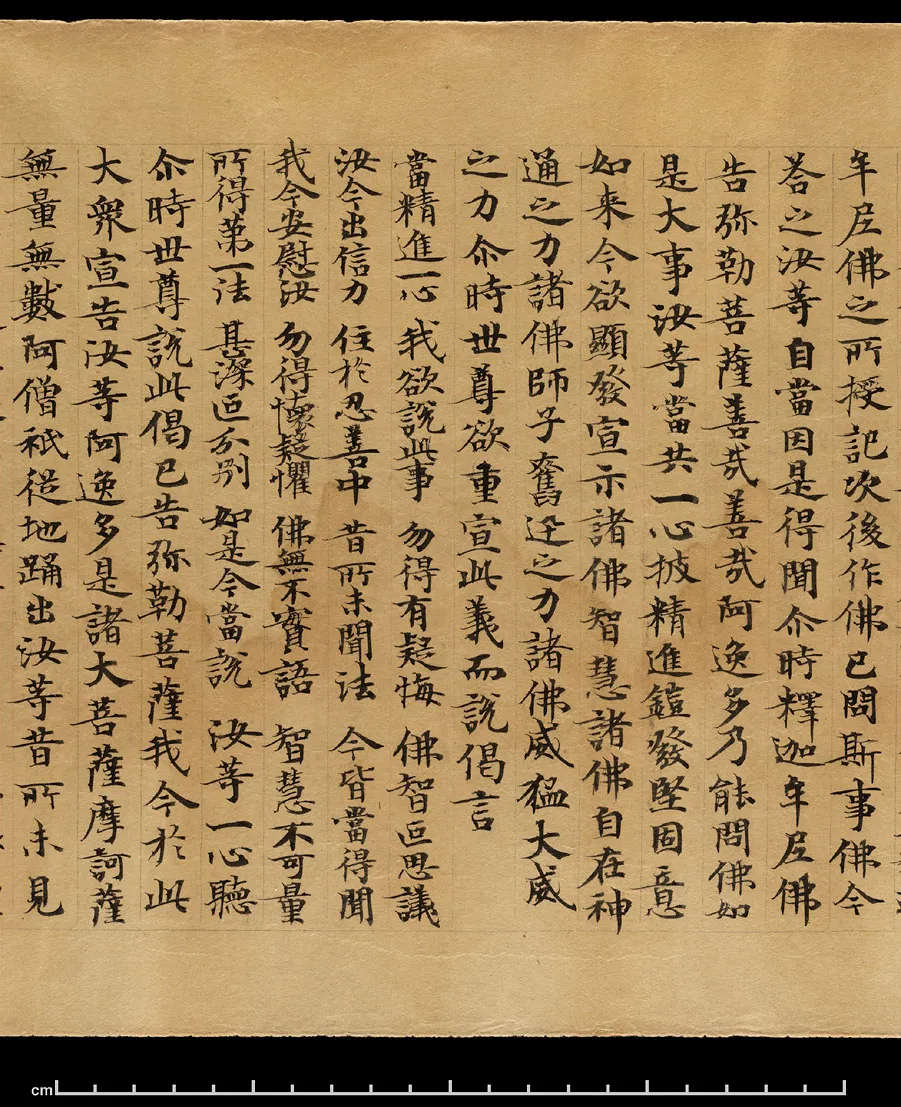 牟尼佛之所授記次後作佛已問斯事佛今
荅之汝等自當因是得聞尒時釋迦牟尼佛
告弥勒菩薩善哉善哉阿逸多乃能問佛如
是大事汝等當共一心披精進鎧發堅固意
如来今欲顯發宣示諸佛智慧諸佛自在神
通之力諸佛師子奮迅之力諸佛威猛大威
之力尒時世尊欲重宣此義而說偈言
當精進一心 我欲說此事 勿得有疑悔 佛智叵思議
汝今出信力 住於忍善中 昔所未聞法 今皆當得聞
我今安慰汝 勿得懷疑懼 佛無不實語 智慧不可量
所得第一法 甚深叵分別 如是今當說 汝等一心聽
尒時世尊說此偈已告弥勒菩薩我今於此
大衆宣告汝等阿逸多是諸大菩薩摩訶薩
無量無數阿僧祇從地踊出汝等昔所未見
cm